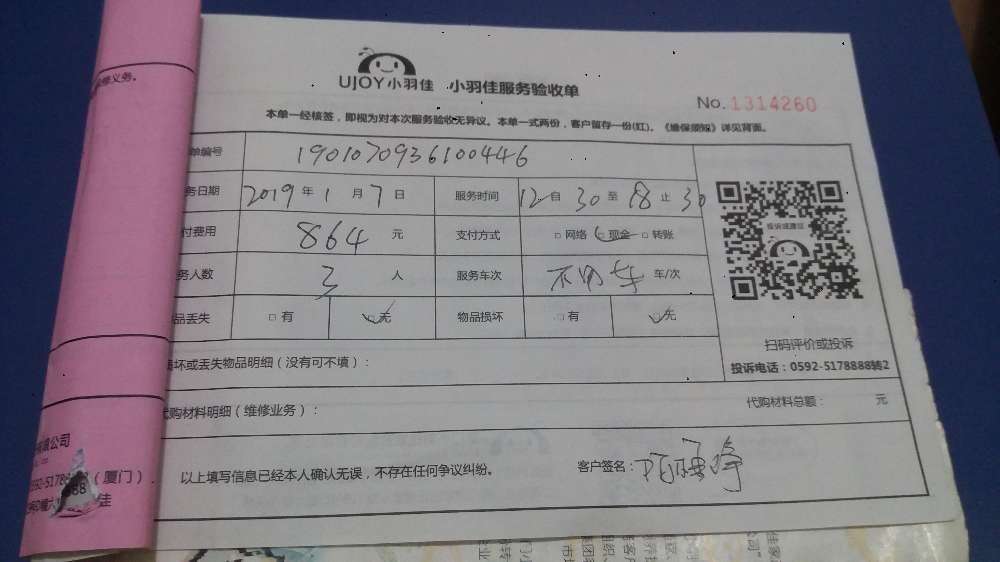 修义务。
UJOY小羽佳 小羽佳服务验收单
No. 1314260
本单一经核签，即视为对本次服务验收无异议。本单一式两份，客户留存一份(红)。《维保须知》详见背面。
单编号 1901070936100446
务日期 2019 年 1 月 7 日 服务时间 12 自 30 至 18 止 30
付费用 864 元 支付方式 □ 网络 □ 现金 □ 转账
务人数 3 人 服务车次 不用车 车/次
品丢失 □ 有 □ 无 物品损坏 □ 有 无
投诉或建议
扫码评价或投诉
投诉电话：0592-5178888转2
损坏或丢失物品明细（没有可不填）：
代购材料明细（维修业务）： 代购材料总额： 元
以上填写信息已经本人确认无误，不存在任何争议纠纷。 客户签名：
限公司
0592-51786（厦门）
88
佳